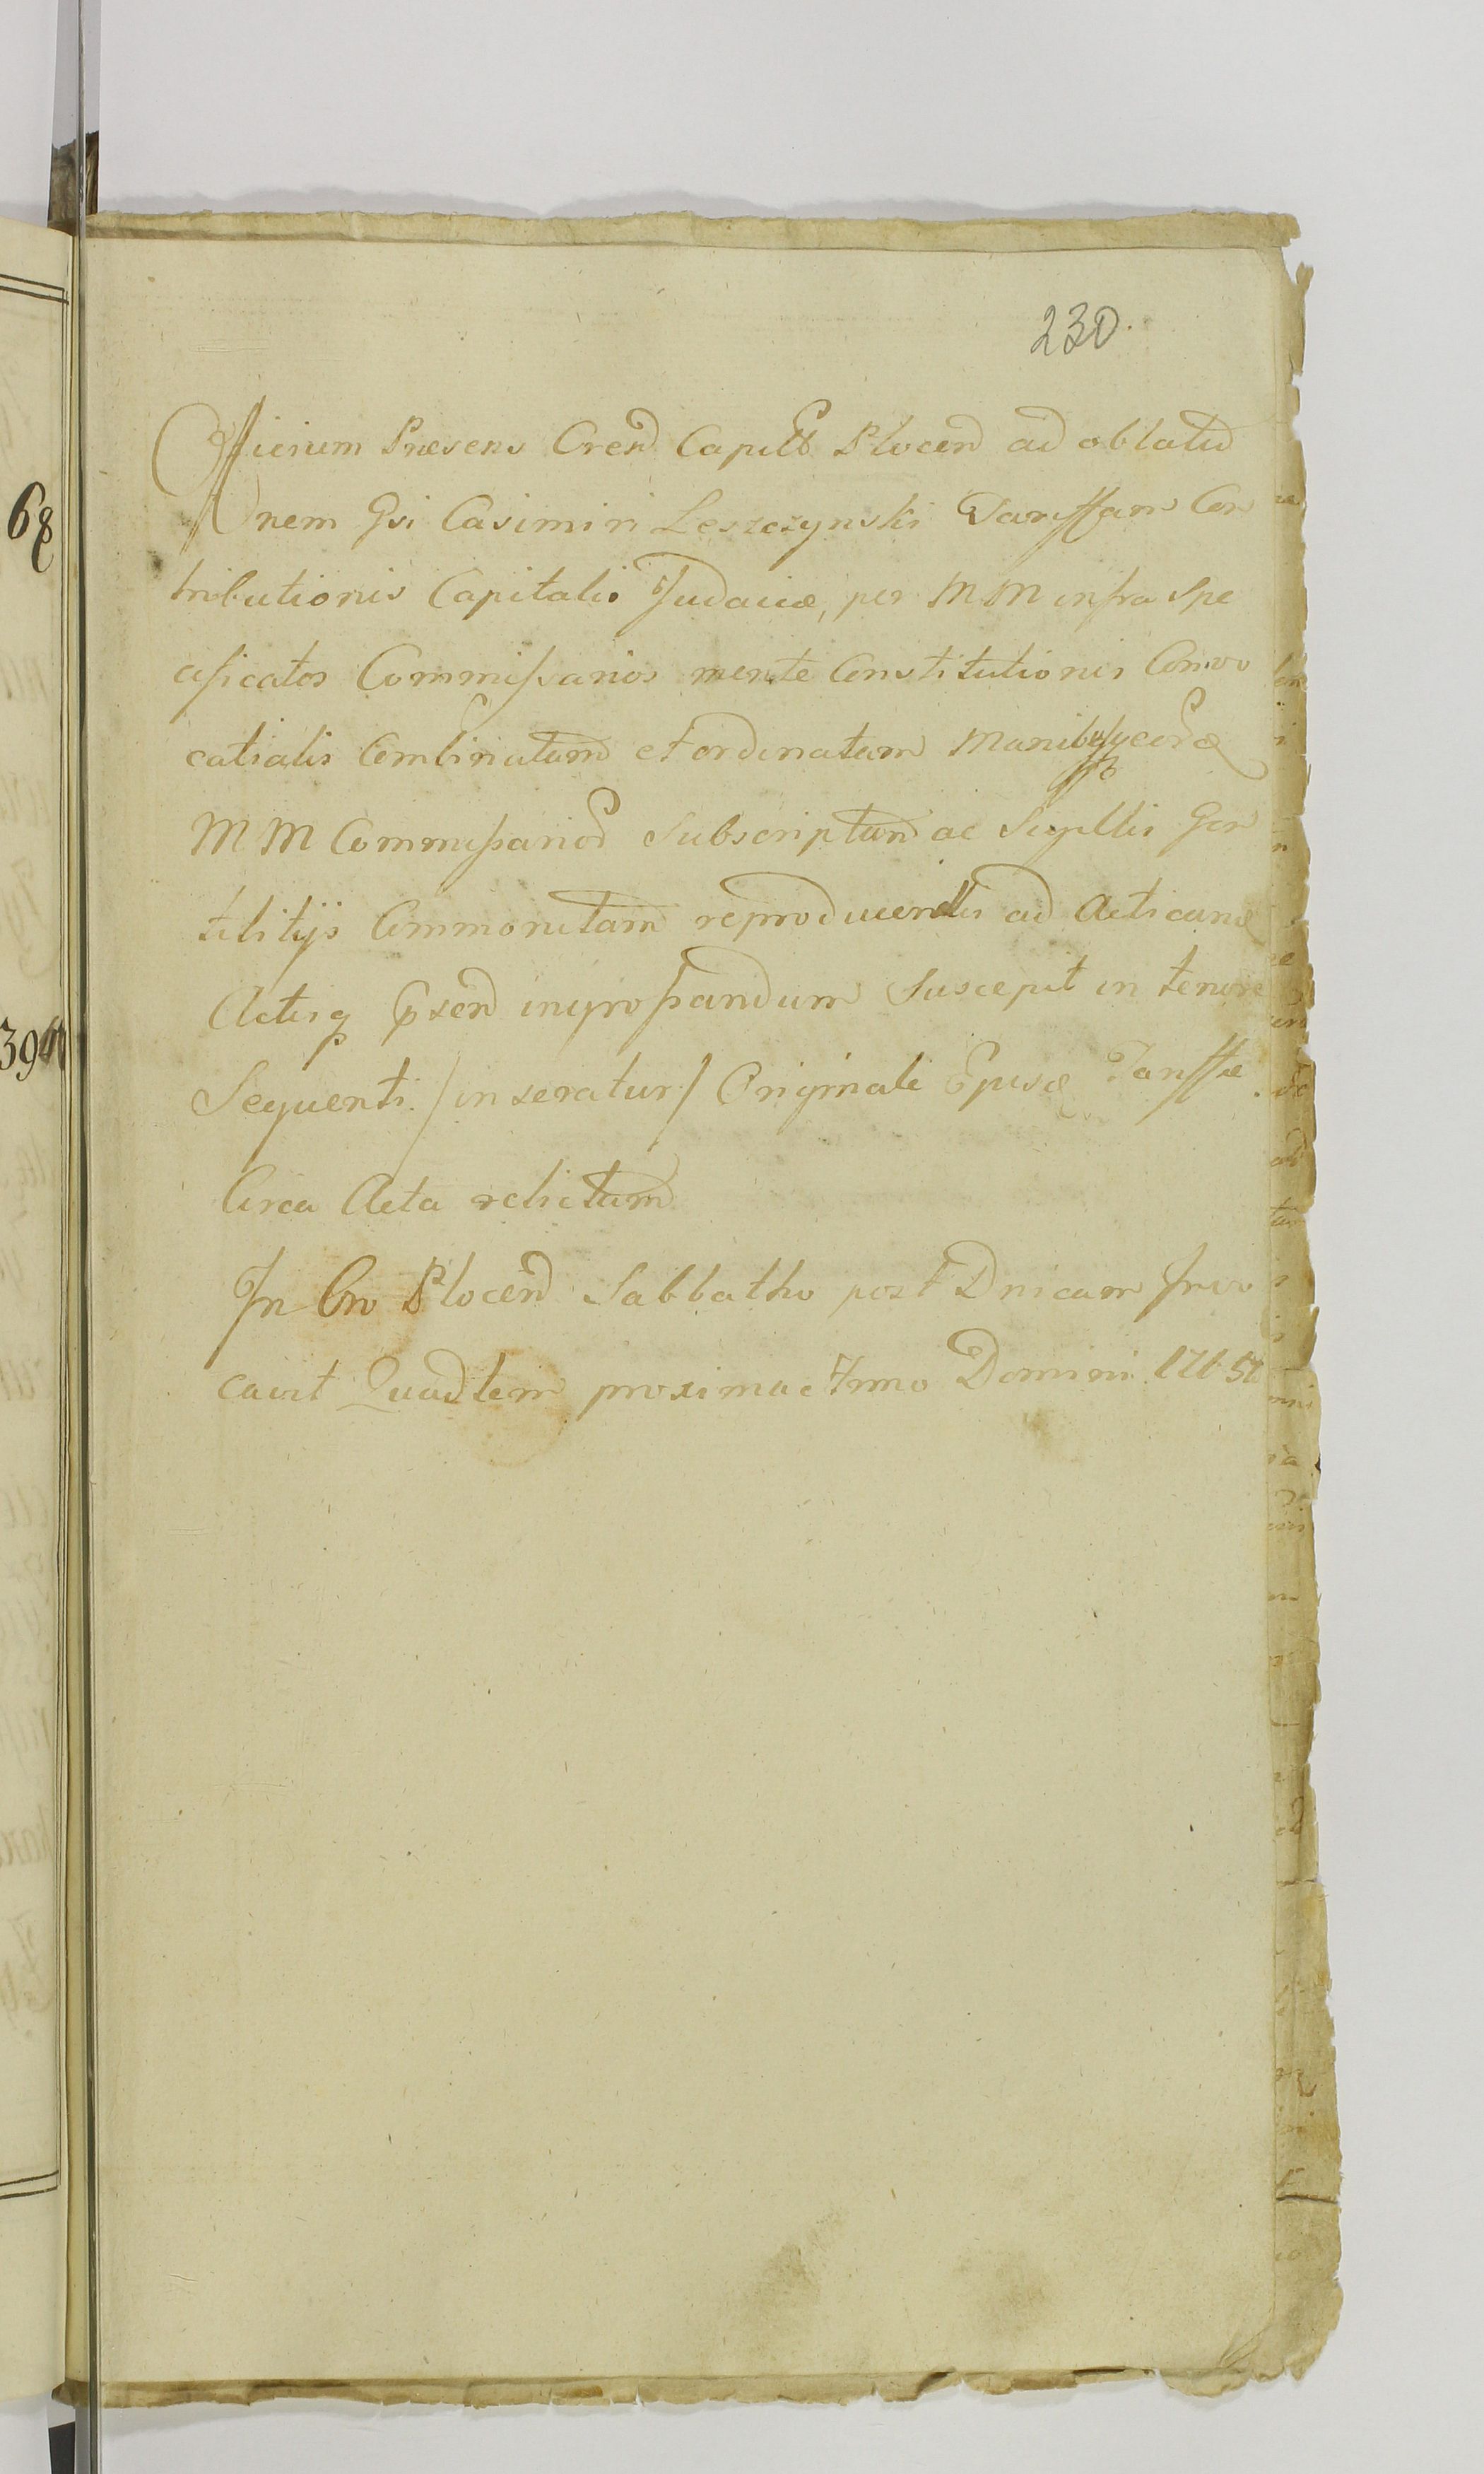 230.
Officium Præsens Cren Capitt Plocen ad oblatio
nem Gsi Casimiri Leszczynski Tariffam Con
tributionis Capitalis Judaicæ, per MM infra Spe
cificatos Commissarios mente Constitutionis Convo
catialis Combinatam et ordinatam Manibusq
MM Commissarior Subscriptam ac Sigillis Gen
tilitijs Communitam reproducentis ad Acticand
Actisq ingrossandum Suscepit in tenore
Sequenti /inseratur/ Originali Tariffæ
Circa Acta relictum
In Cro Plocen Sabbatho post Dnicam Invo
cavit Quadlem proxima Anno Domini
68
39